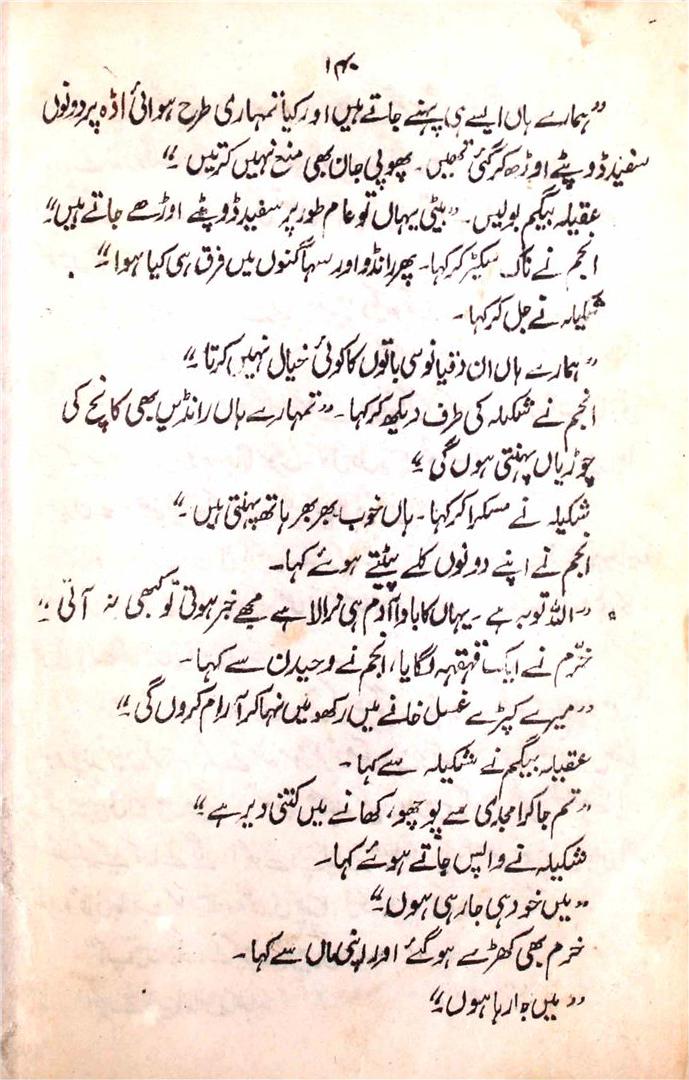 ۱۴۰
”ہمارے ہاں ایسے ہی پہنے جاتے ہیں اور کیا تمہاری طرح ہوائی اڈہ پر دونوں
سفید ڈوپٹے اوڑھ کر گئی تھیں۔ پھوپی جان بھی منع نہیں کرتیں۔“
عقیلہ بیگم بولیں۔ ”بیٹی یہاں تو عام طور پر سفید ڈوپٹے اوڑھے جاتے ہیں“
انجم نے ناک سکیٹر کر کہا۔ پھر رانڈو اور سہاگنوں میں فرق ہی کیا ہوا۔“
شکیلہ نے جل کر کہا۔
”ہمارے ہاں ان دقیانوسی باتوں کا کوئی خیال نہیں کرتا۔“
انجم نے شکیلہ کی طرف دیکھ کر کہا۔ ”تمہارے ہاں رانڈیں بھی کانچ کی
چوڑیاں پہنتی ہوں گی۔“
شکیلہ نے مسکرا کر کہا۔ ہاں خوب بھر بھر ہاتھ پہنتی ہیں۔“
انجم نے اپنے دونوں کلے پیٹتے ہوئے کہا۔
”اللہ توبہ ہے۔ یہاں کا باوا آدم ہی نرالا ہے مجھے خبر ہوتی تو کبھی نہ آتی۔“
خرّم نے ایک قہقہہ لگایا، انجم نے وحیدن سے کہا۔
”میرے کپڑے غسل خانے میں رکھو میں نہا کر آرام کروں گی۔“
عقیلہ بیگم نے شکیلہ سے کہا۔
”تم جا کر امجدی سے پوچھو، کھانے میں کتنی دیر ہے۔“
شکیلہ نے واپس جاتے ہوئے کہا۔
”میں خود ہی جا رہی ہوں۔“
خرم بھی کھڑے ہو گئے اور اپنی ماں سے کہا۔
”میں جا رہا ہوں۔“